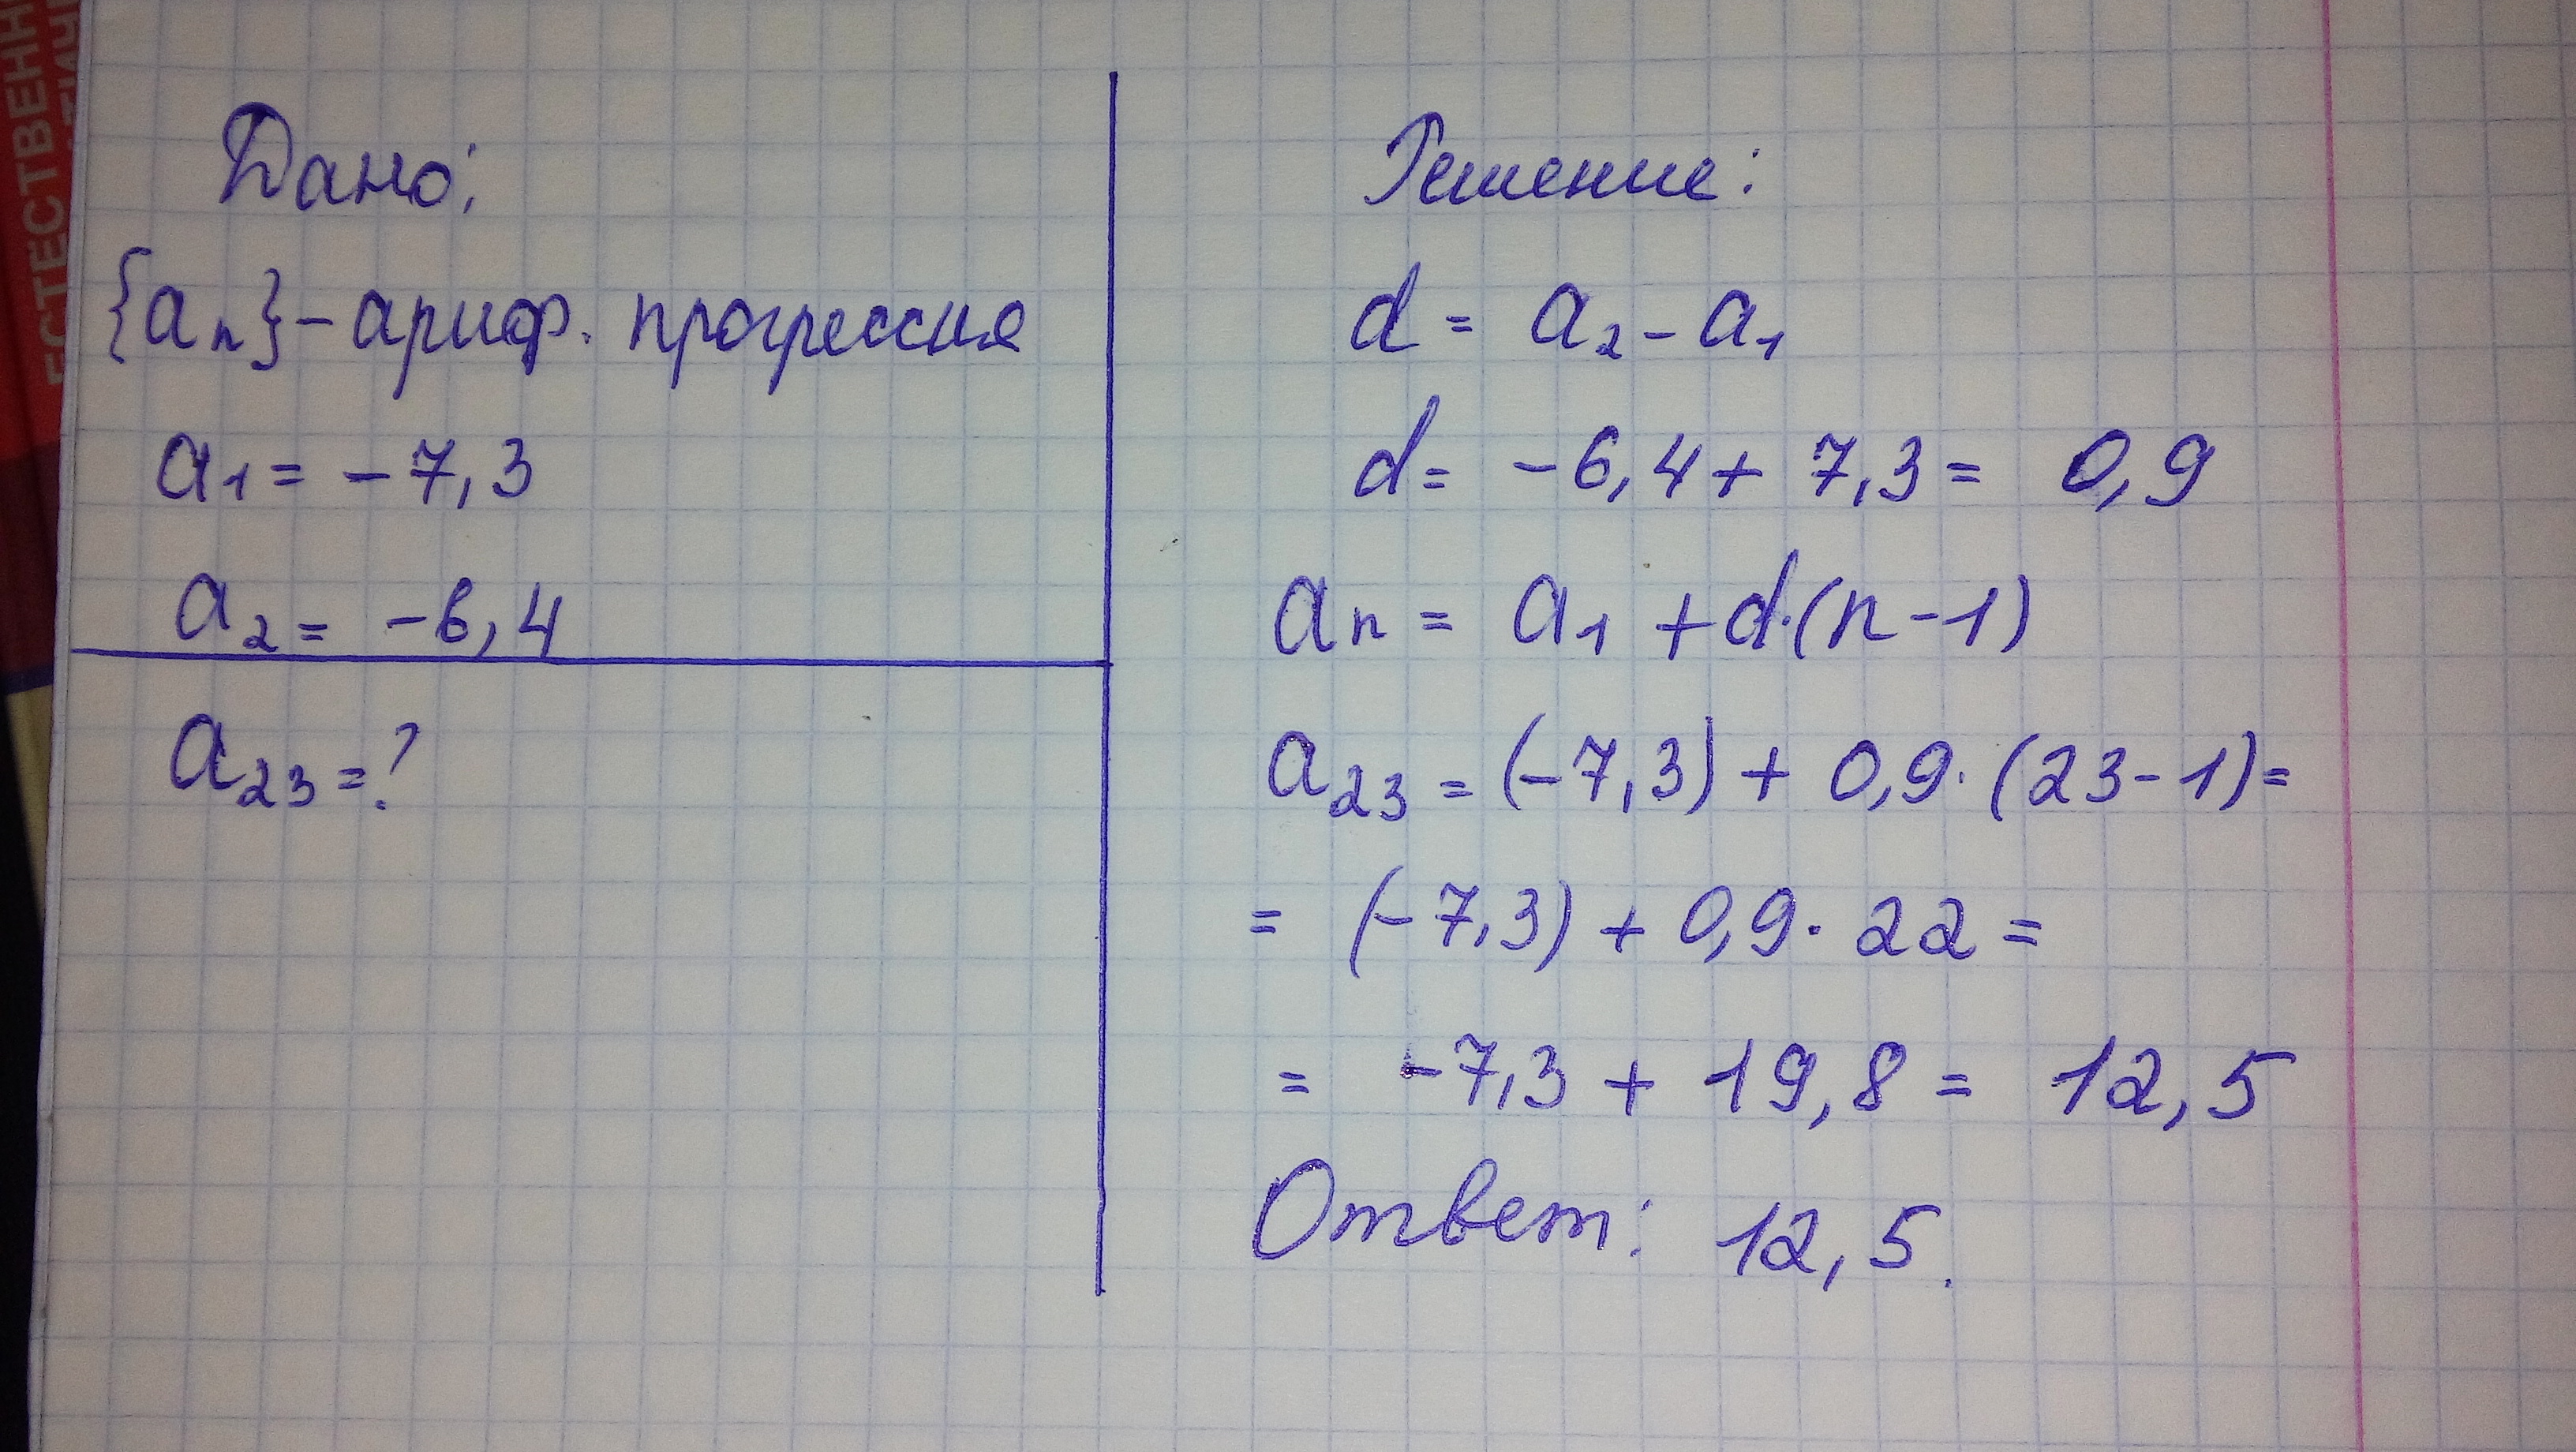 ЕСТЕСТВЕНН
Дано:
{aₙ} - ариф. прогрессия
a₁ = -7,3
a₂ = -6,4
a₂₃ = ?
Решение:
d = a₂ - a₁
d = -6,4 + 7,3 = 0,9
aₙ = a₁ + d·(n-1)
a₂₃ = (-7,3) + 0,9·(23-1) =
= (-7,3) + 0,9·22 =
= -7,3 + 19,8 = 12,5
Ответ: 12,5.